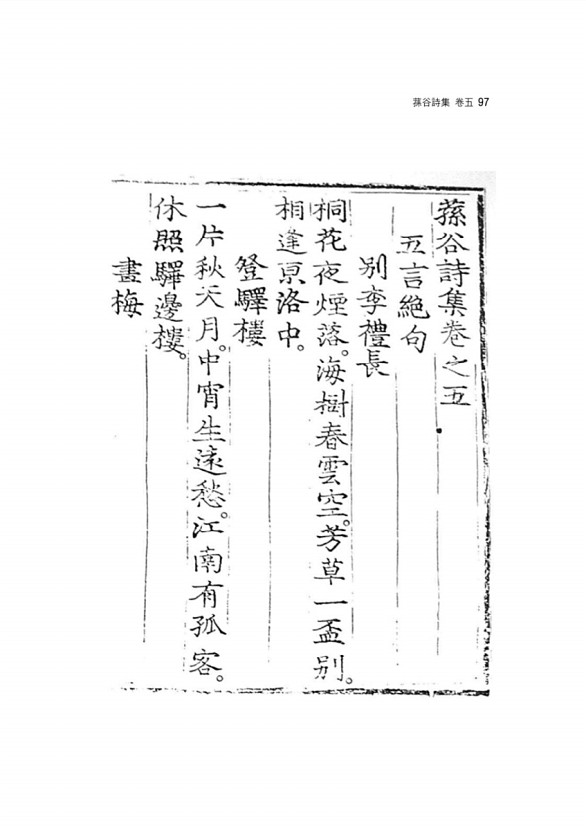 蓀谷詩集 卷五 97
蓀谷詩集卷之五
五言絶句
別李禮長
桐花夜煙落。海樹春雲空。芳草一盃別。
相逢亰洛中。
登驛樓
一片秋天月。中宵生遠愁。江南有孤客。
休照驛邊樓。
畫梅